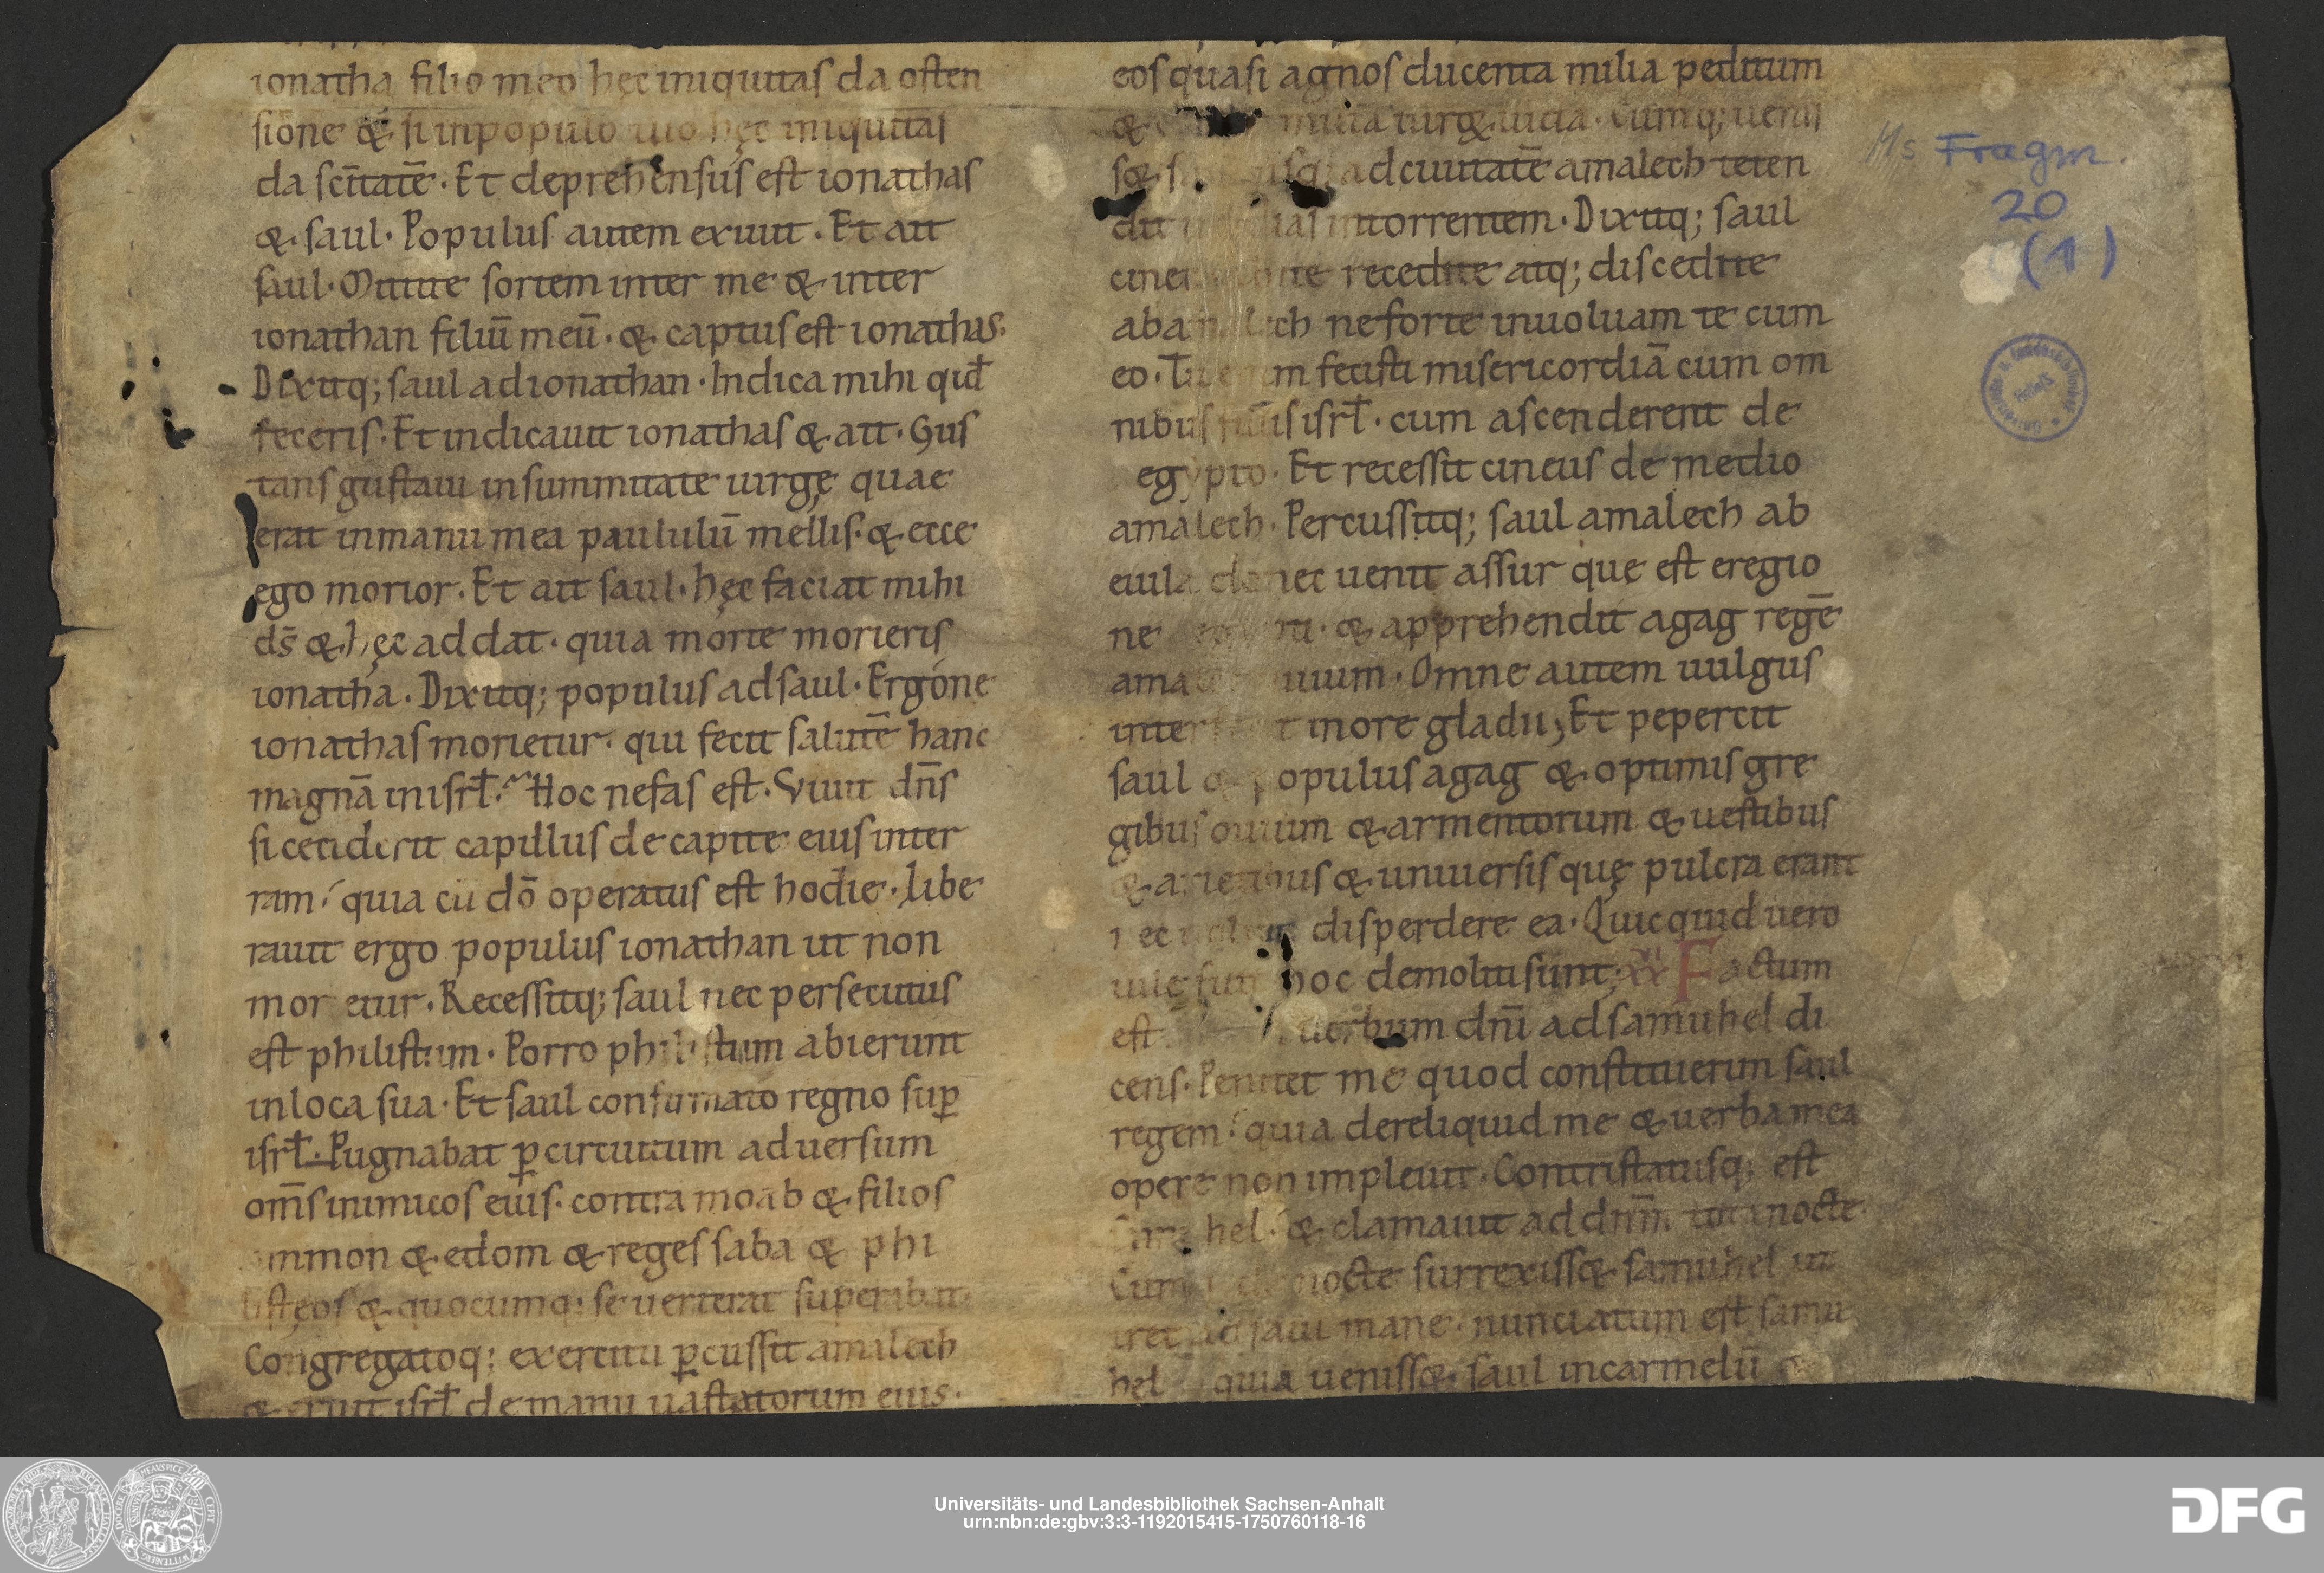 ionatha filio meo hęc iniquitas da osten
sione & si inpopulo tuo hęc iniquitas
da sc̄itatē. Et deprehensus est ionathas
&. saul. Populus autem exiuit. Et ait
saul. Mittite sortem inter me & inter
ionathan filiū meū. &. captus est ionathas.
Dixitq; saul ad ionathan. Indica mihi qid̄
feceris. Et indicauit ionathas & ait. Gus
tans gustaui insummitate uirgę quae
erat inmanu mea paululū mellis. & ecce
ego morior. Et ait saul. hęc faciat mihi
ds̄ & hęc addat. quia morte morieris
ionatha. Dixitq; populus adsaul. Ergone
ionathas morietur. qui fecit salutē hanc
magnā inisrł. Hoc nefas est. Viuit dn̄s
si ceciderit capillus de capite eius inter
ram. quia cū dō operatus est hodie. Libe
rauit ergo populus ionathan ut non
mor etur. Recessitq; saul nec persecutus
est philistiim. Porro philistiim abierunt
inloca sua. Et saul confirmato regno suꝑ
isrł. Pugnabat ꝑcircuitum aduersum
om̄s inimicos eius. contra moab & filios
mmon & edom & reges saba & phi
listęos & quocumq; se uerterat superabat.
Congregatoq; exercitu ꝑcussit amalech
& eruit isrł de manu uastatorum eius.
eos quasi agnos ducenta milia peditum
& milia uirg& iuda. Cumq; uenis
s& adciuitatē amalech teten
dit intorrentem. Dixitq; saul
cinei recedite atq; discedite
aba lech neforte inuoluam te cum
eo. Tu m fecisti misericordiā cum om
nibus isrł. cum ascenderent de
egypto. Et recessit cineus de medio
amalech. Percussitq; saul amalech ab
euila donec uenit assur que est eregio
ne . & apprehendit agag regē
ama uiuum. Omne autem uulgus
inter t inore gladii; Et pepercit
saul & populus agag & optimis gre
gibus ouium & armentorum & uestibus
& arietibus & uniuersis quę pulcra erant
nec disperdere ea. Quicquid uero
uile fuit hoc demoliti sunt; Factum
est uerbum dn̄i adsamuhel di
cens. Penitet me quod constituerim saul
regem. quia dereliquid me & uerba mea
opere non impleuit. Contristatusq; est
samuhel. & clamauit ad dnm̄ tota nocte.
Cum nocte surrexiss& samuhel ut
iret ad saul mane. nunciatum est samu
hel quia ueniss& saul incarmelū
Ms Fragm.
20
(1)
Universitäts- und Landesbibliothek Sachsen-Anhalt
urn:nbn:de:gbv:3:3-1192015415-1750760118-16
DFG